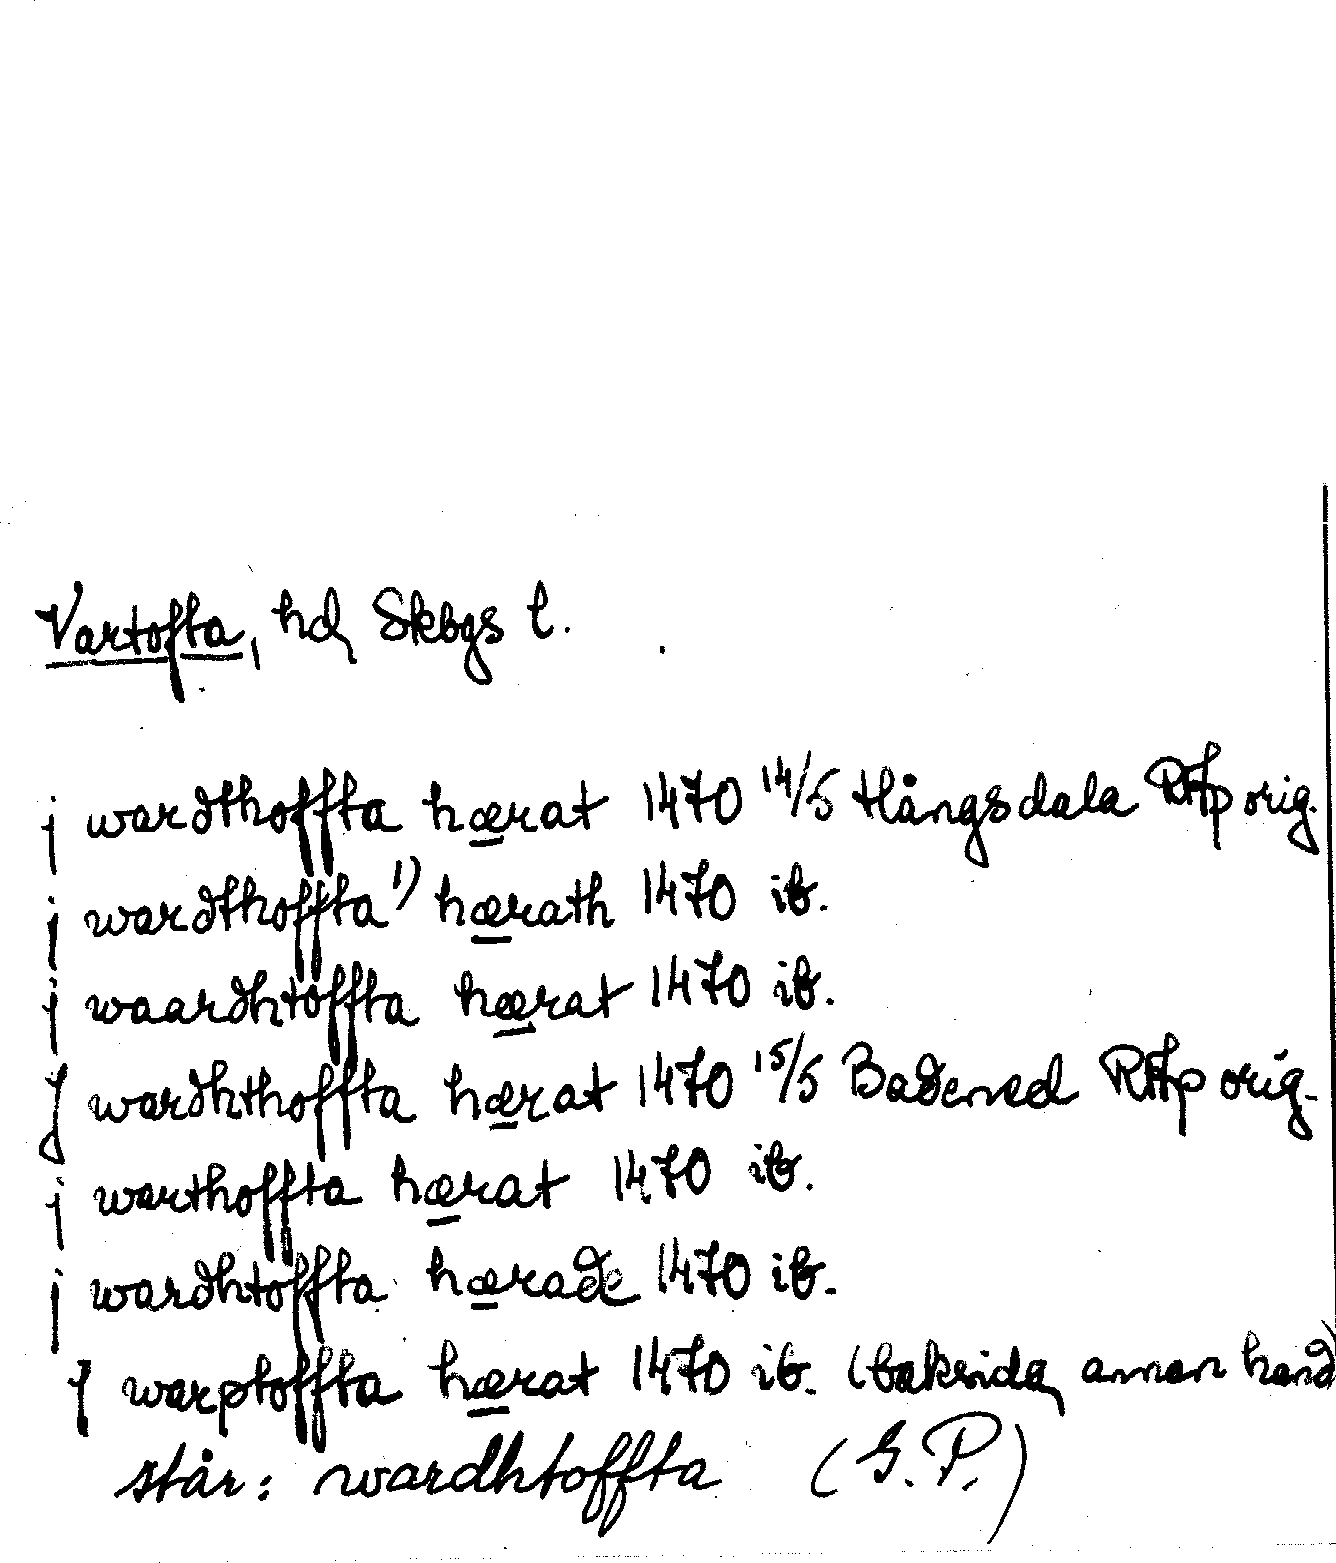 Vartofta, hd, Skbgs l.
j wardthoffta hærat 1470 14/5 Hångsdala RAp orig.
j wardthoffta 1) hærath 1470 ib.
j waardhtoffta hærat 1470 ib.
J wardhthoffta hærat 1470 15/5 Badened RAp orig.
j warthoffta hærat 1470 ib.
j wardhtoffta hærade 1470 ib.
J warptoffta hærat 1470 ib. (baksida, annan hand)
står: wardhtoffta (G.P.)